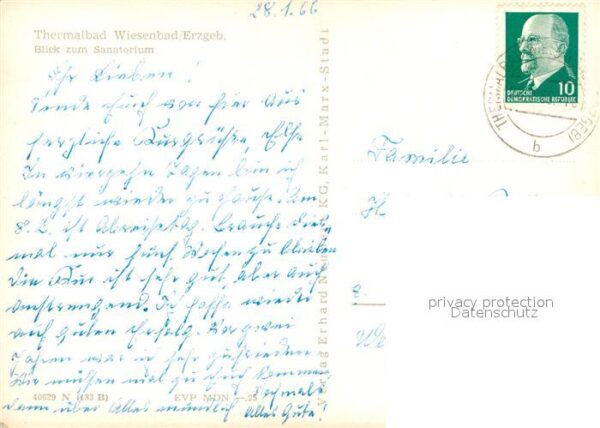 28.1.66
Thermalbad Wiesenbad/Erzgeb.
Blick zum Sanatorium
Ihr Lieben!
Sende Euch von hier aus
herzliche Kurgrüße, Else
In vierzehn Tagen bin ich
längst wieder zu Hause. Am
8. 2. ist Abreisetag. Brauche dies-
mal nur fünf Wochen zu bleiben
Die Kur ist sehr gut, aber auch
anstrengend. Ich hoffe wieder
auf guten Erfolg. Vor zwei
Jahren war ich sehr zufrieden
Wir müssen mal zu Euch kommen
dann über Alles mündlich
Nochmals
Alles Gute!
40629 N (183 B) EVP MDN —.25
Verlag Erhard KG, Karl-Marx-Stadt
10
DEUTSCHE
DEMOKRATISCHE REPUBLIK
b
Familie
privacy protection
Datenschutz